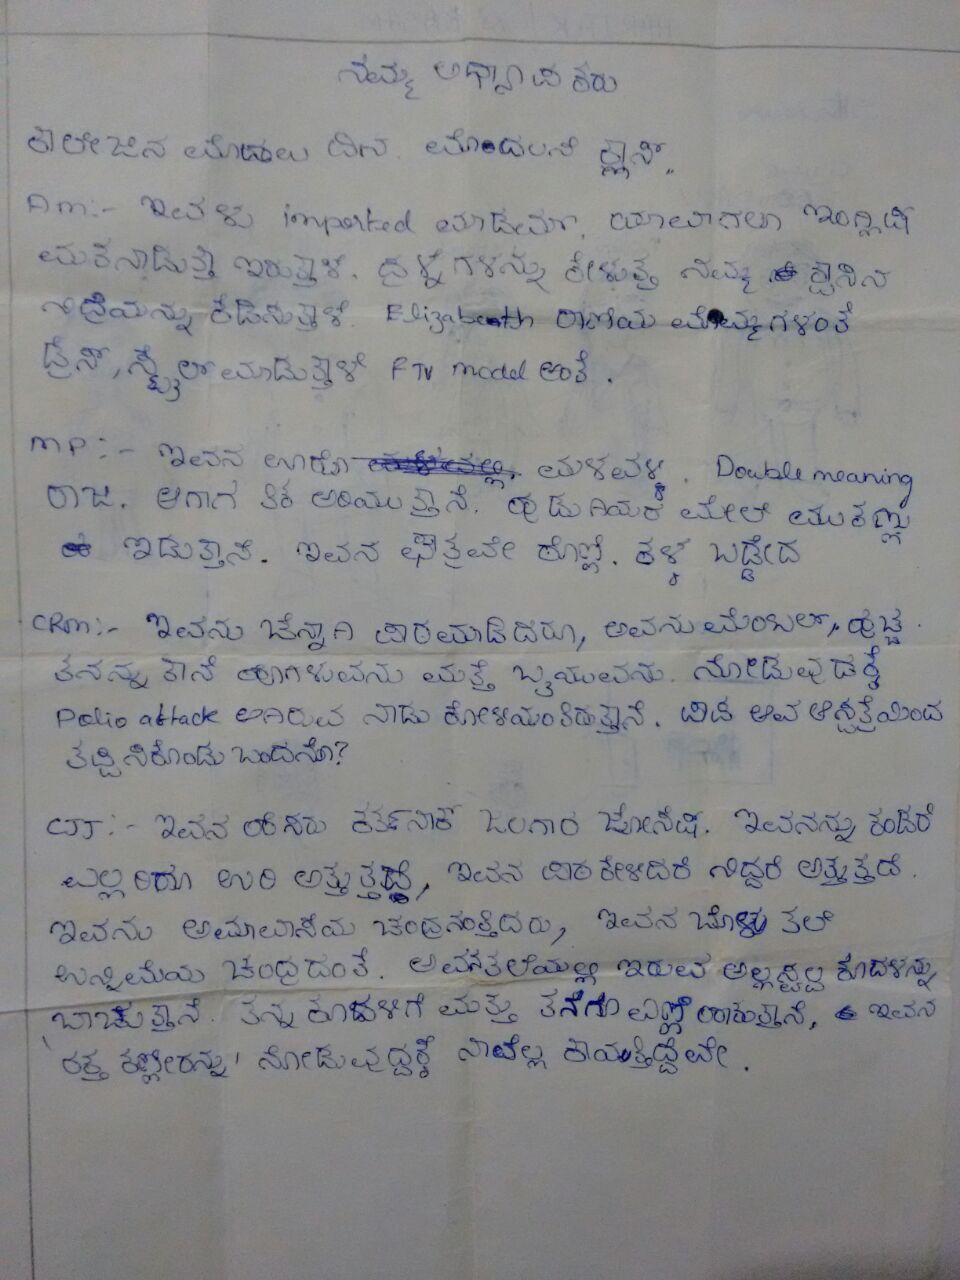 ನಮ್ಮ ಅಧ್ಯಾಪಕರು
ಕಾಲೇಜಿನ ಮೊದಲು ದಿನ. ಮೊಂದಲನೆ ಕ್ಲಾಸ್..
Am:- ಇವಳು imported ಮಾಡೇಮಾ. ಯಾವಾಗಲೂ ಇಂಗ್ಲಿಷಿ
ಮತನಾಡುತ್ತಾ ಇರುತ್ತಾಳೆ. ಪ್ರಶ್ನೆಗಳನ್ನು ಕೇಳುತ್ತ ನಮ್ಮ ಕ್ಲಾಸಿನ
ನಿದ್ರೆಯನ್ನು ಕೆಡಿಸುತ್ತಾಳೆ. Elizabeath ರಾಣಿಯ ಮೊಮ್ಮಗಳಂತೆ
ಡ್ರೆಸ್, ಸ್ಟೈಲ್ ಮಾಡುತ್ತಾಳೆ FTV model ಅಂತೆ.
MP:- ಇವನ ಊರೊ ಮಳವಳ್ಳಿ. Double meaning
ರಾಜ. ಆಗಾಗ ತಿಕ ಅರಿಯುತ್ತಾನೆ. ಹುಡುಗಿಯರ ಮೇಲೆ ಮುಕಣ್ಣು
ಇಡುತ್ತಾನೆ. ಇವನ ಛತ್ರವೇ ಕೊಣ್ಣೆ. ಕಳ್ಳ ಬಡ್ಡೇದ
CRM:- ಇವನು ಚೆನ್ನಾಗಿ ಪಾಠಮಾಡಿದರೂ, ಅವನು ಮೆಂಟಲ್, ಹುಚ್ಚ.
ತನನ್ನು ತಾನೆ ಹೊಗಳುವನು ಮತ್ತೆ ಬ್ಯಯುವನು. ನೋಡುವುದಕ್ಕೆ
Polio attack ಆಗಿರುವ ನಾಡು ಕೋಳಿಯಂತಿರುತ್ತಾನೆ. ಯಾವ ಆಸ್ಪತ್ರೆಯಿಂದ
ತಪ್ಪಿಸಿಕೊಂಡು ಬಂದನೊ?
CJJ:- ಇವನ ಹೆಸರು ಕರ್ತನಾಕ್ ಜಲಗಾರ ಜೋಸೆಫಿ. ಇವನನ್ನು ಕಂಡರೆ
ಎಲ್ಲರಿಗೂ ಉರಿ ಅತ್ತುತ್ತದೆ, ಇವನ ಪಾಠಕೇಳಿದರೆ ನಿದ್ದರೆ ಅತ್ತುತ್ತದೆ.
ಇವನು ಅಮಾವಾಸೆಯ ಚಂದ್ರನಂತ್ತಿದರು, ಇವನ ಬೊಳು ತಲೆ
ಉನ್ನಿಮೆಯ ಚಂದ್ರದಂತೆ. ಅವನತಲೆಯಲ್ಲಿ ಇರುವ ಅಲ್ಲಸ್ವಲ್ಪ ಕೂದಳನ್ನು
ಬಾಚುತ್ತಾನೆ. ತನ್ನ ಕೂದಳಿಗೆ ಮತ್ತು ತನೆಗೂ ಎಣ್ಣೆ ಹಾಕುತ್ತಾನೆ, ಇವನ
'ರಕ್ತ ಕಣ್ಣೀರನ್ನು' ನೋಡುವುದ್ದಕ್ಕೆ ನಾವೆಲ್ಲ ಕಾಯುತ್ತಿದ್ದೇವೇ.